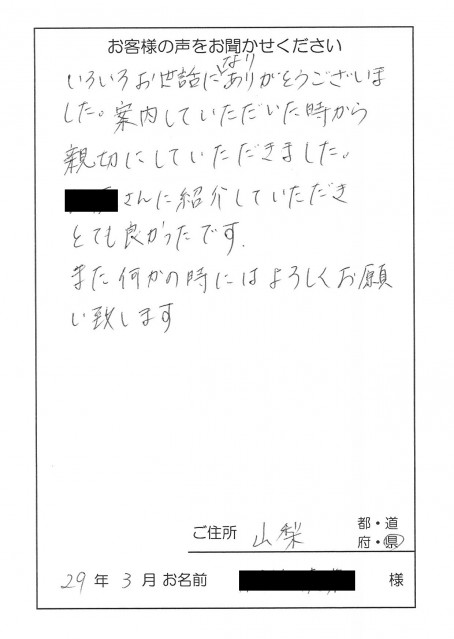 お客様の声をお聞かせください
いろいろお世話になりありがとうございま
した。案内していただいた時から
親切にしていただきました。
さんに紹介していただき
とても良かったです.
また何かの時にはよろしくお願
い致します
ご住所 山梨 都・道
府・県
29年3月お名前 様